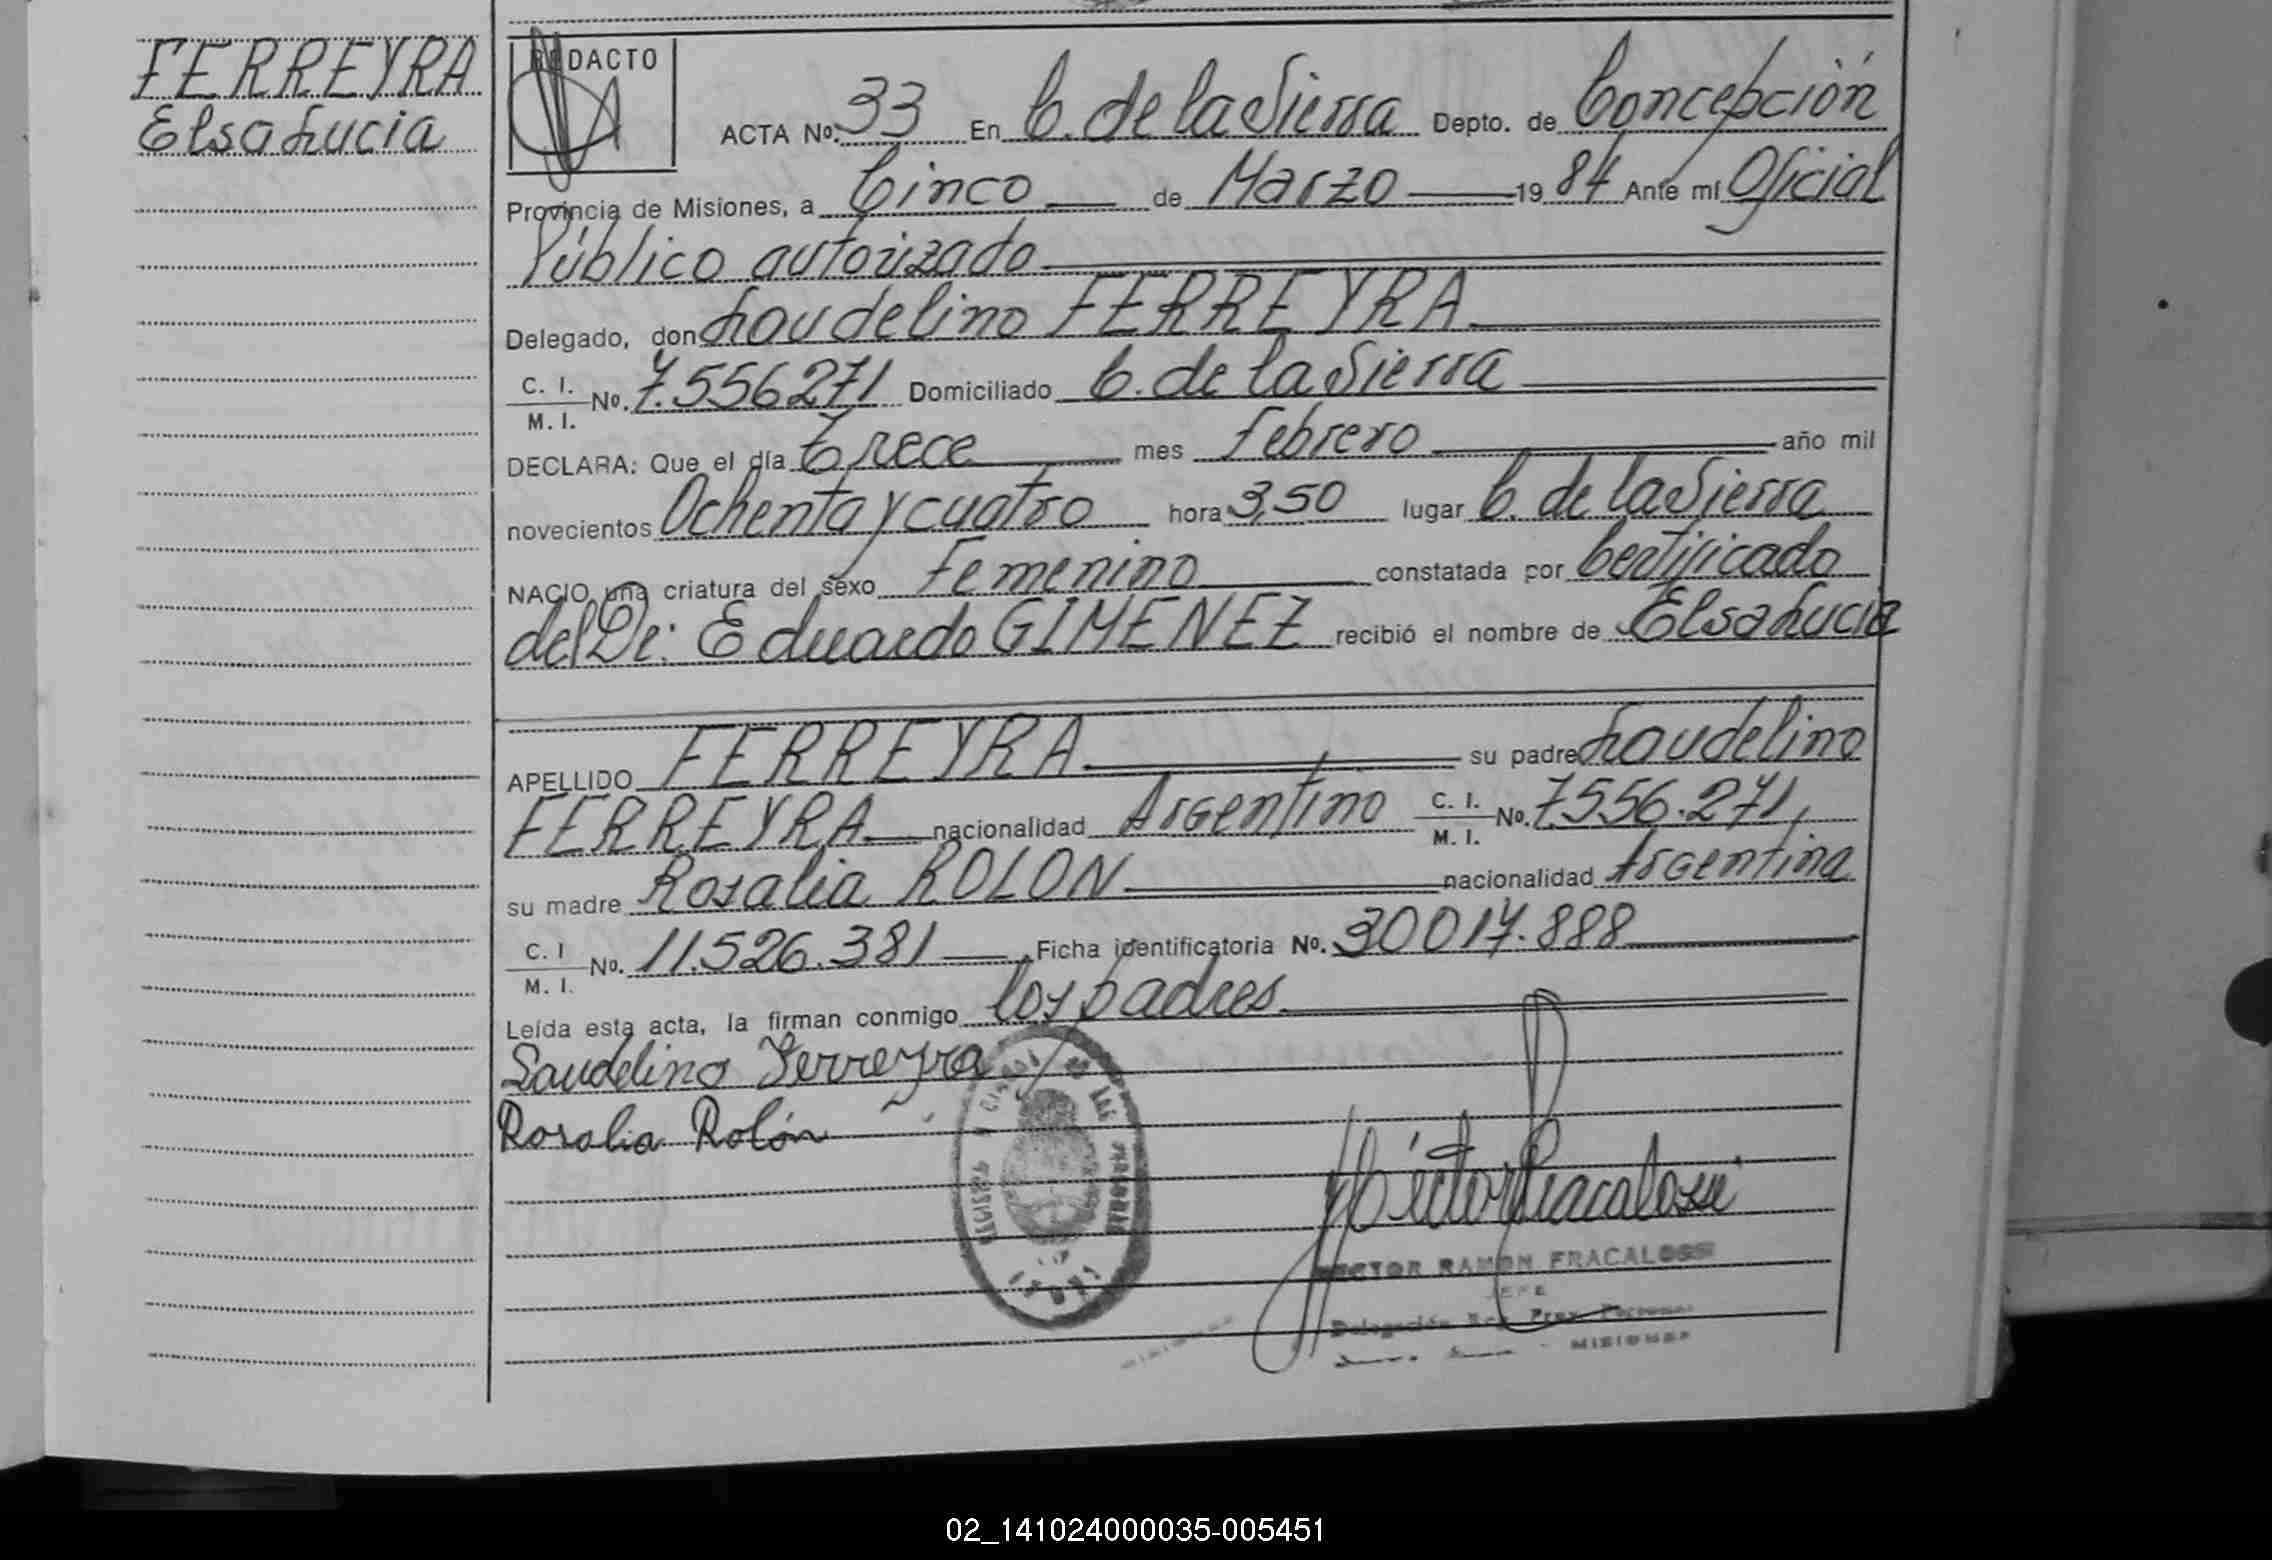 FERREYRA
Elsa Lucia
REDACTO
ACTA Nº: 33 En C. de la Sierra Depto. de Concepción
Provincia de Misiones, a Cinco de Marzo 19 84 Ante mí Oficial
Público autorizado
Delegado, don Laudelino FERREYRA
C. I. / M. I. Nº. 7.556271 Domiciliado C. de la Sierra
DECLARA: Que el día Trece mes Febrero año mil
novecientos Ochenta y cuatro hora 3,50 lugar C. de la Sierra
NACIO una criatura del sexo Femenino constatada por Certificado
del Dr: Eduardo GIMENEZ recibió el nombre de Elsa Lucia
APELLIDO FERREYRA su padre Laudelino
FERREYRA nacionalidad Argentino C. I. / M. I. Nº. 7.556.271,
su madre Rosalia ROLON nacionalidad Argentina
C. I / M. I. Nº. 11.526.381 Ficha identificatoria Nº. 30017.888
Leída esta acta, la firman conmigo los padres
Laudelino Ferreyra
Rosalia Rolón
REGISTRO CIVIL DE LAS PERSONAS
Héctor Fracalossi
HECTOR RAMON FRACALOSSI
JEFE
Delegación Reg. Prov. Personas
MISIONES
02_141024000035-005451